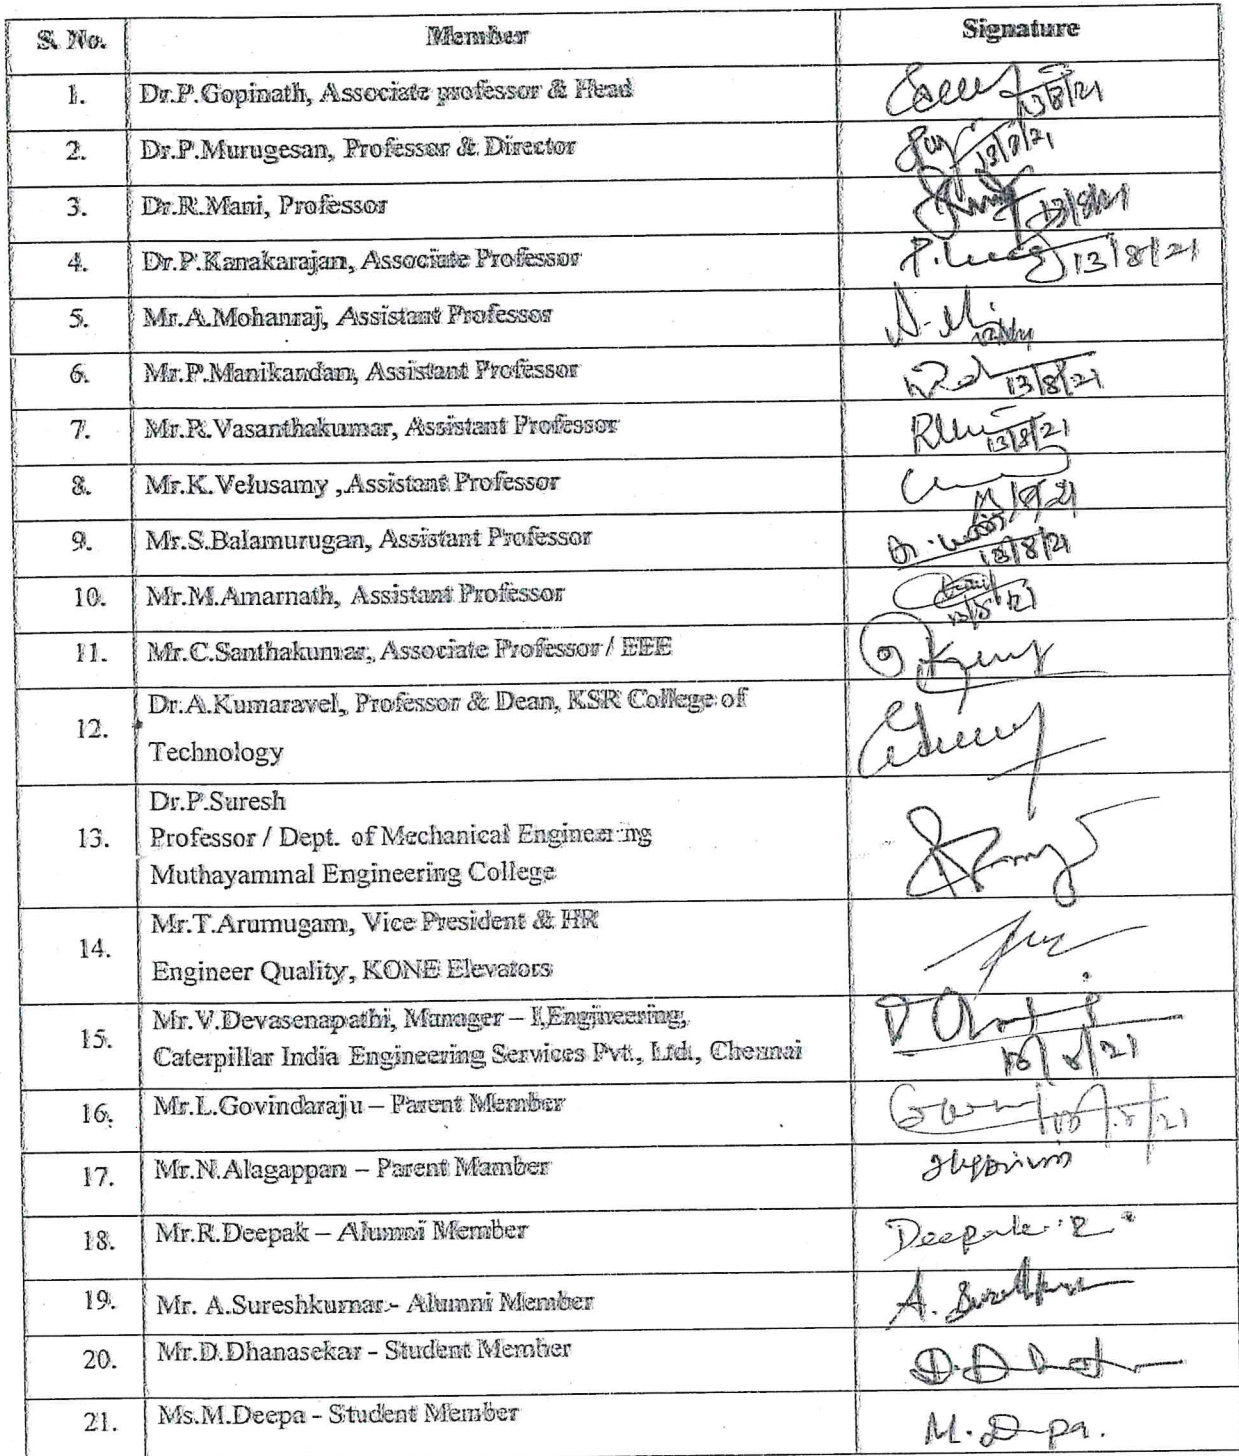 S. No. Member Signature
1. Dr.P.Gopinath, Associate professor & Head 13/8/21
2. Dr.P.Murugesan, Professor & Director 13/8/21
3. Dr.R.Mani, Professor 13/8/21
4. Dr.P.Kanakarajan, Associate Professor 13/8/21
5. Mr.A.Mohanraj, Assistant Professor
6. Mr.P.Manikandan, Assistant Professor 13/8/21
7. Mr.R.Vasanthakumar, Assistant Professor 13/8/21
8. Mr.K.Velusamy ,Assistant Professor
9. Mr.S.Balamurugan, Assistant Professor 13/8/21
10. Mr.M.Amarnath, Assistant Professor
11. Mr.C.Santhakumar, Associate Professor / EEE
12. Dr.A.Kumaravel, Professor & Dean, KSR College of
Technology
Dr.P.Suresh
13. Professor / Dept. of Mechanical Engineering
Muthayammal Engineering College
14. Mr.T.Arumugam, Vice President & HR
Engineer Quality, KONE Elevators
15. Mr.V.Devasenapathi, Manager – I,Engineering,
Caterpillar India Engineering Services Pvt., Ltd., Chennai
16. Mr.L.Govindaraju – Parent Member
17. Mr.N.Alagappan – Parent Mamber
18. Mr.R.Deepak – Alumni Member Deepak R
19. Mr. A.Sureshkumar - Alumni Member
20. Mr.D.Dhanasekar - Student Member
21. Ms.M.Deepa - Student Member M. Deepa.